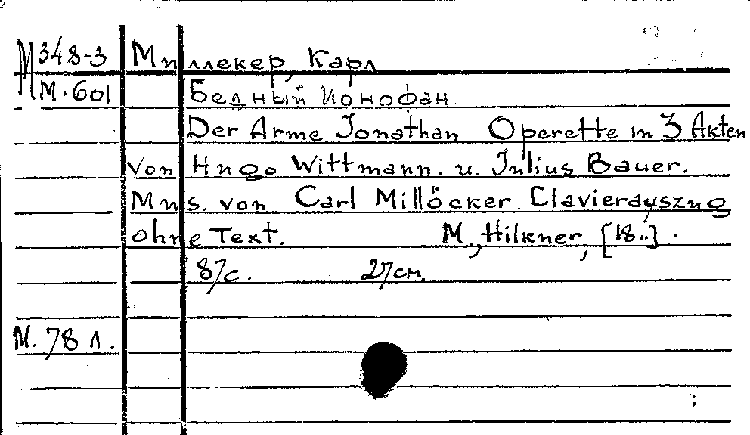 М348-3 Миллекер, Карл
М.601 Бедный Ионофан
Der Arme Jonathan Operette in 3 Akten
von Hugo Wittmann. u. Julius Bauer.
Mus. von Carl Millöcker Clavierauszug
ohne Text. M., Hilkner, [18..].
87с. 27см.
М. 78 л.